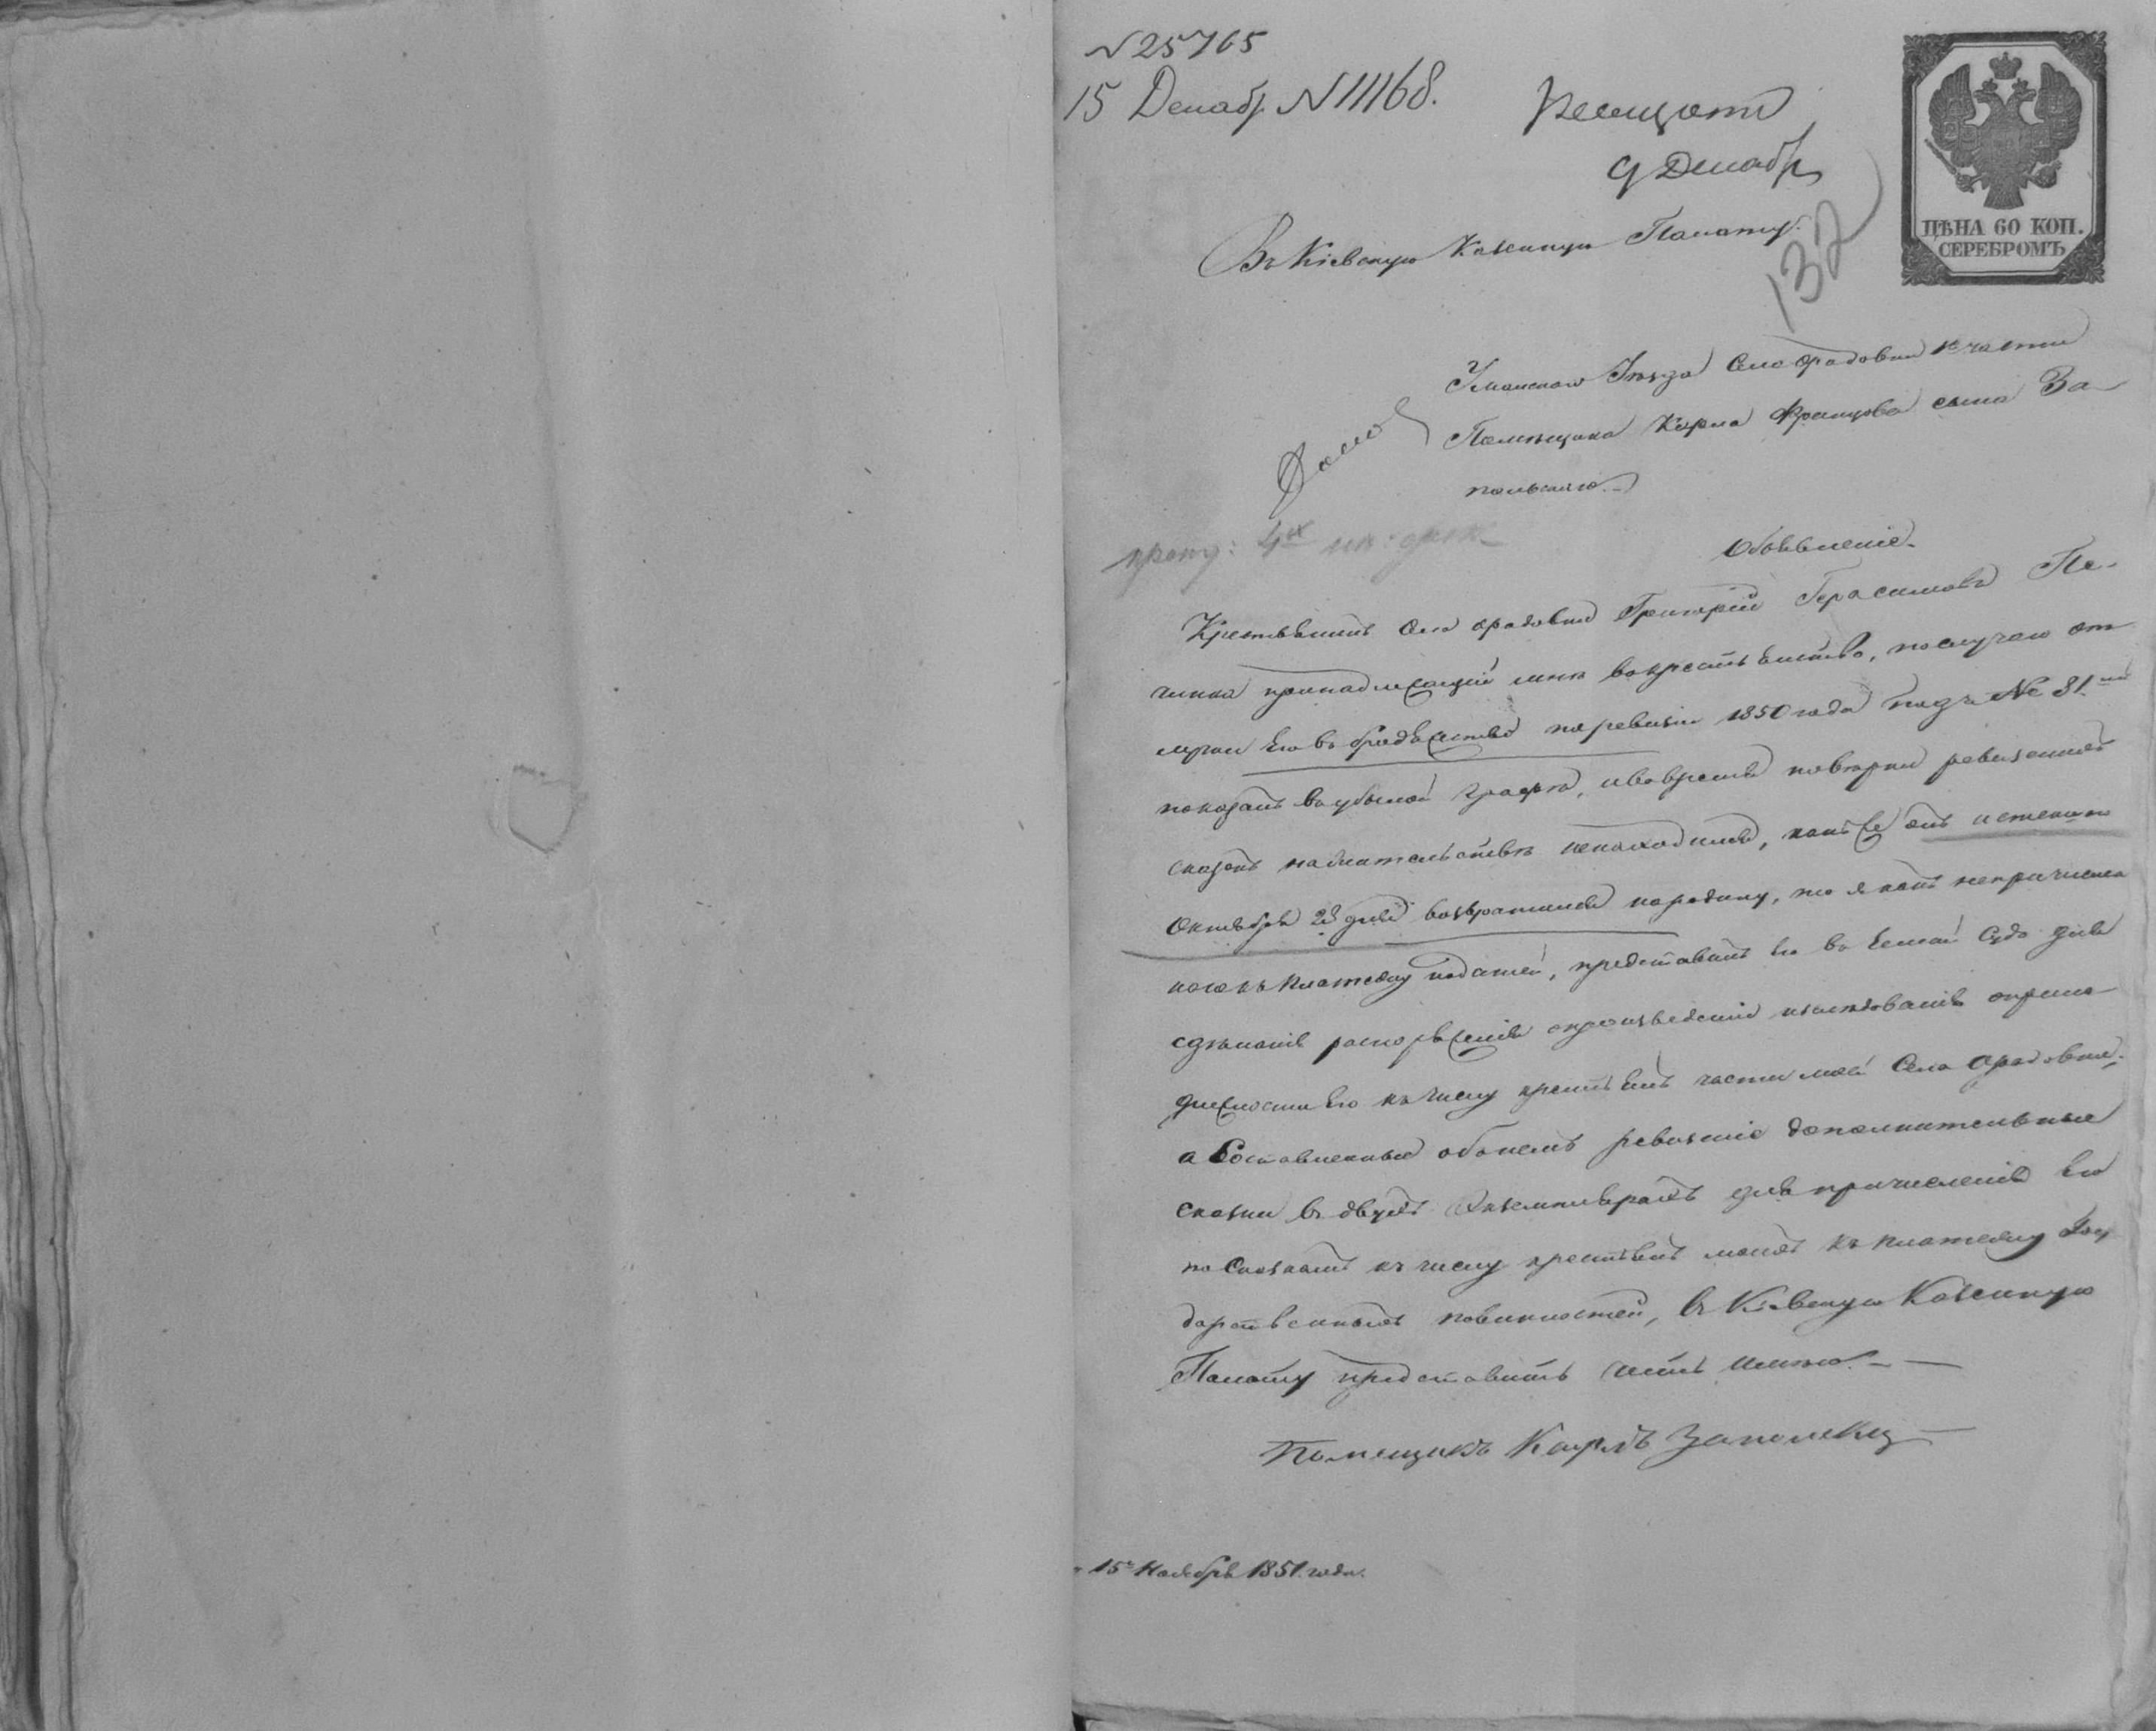 № 25765
15 Декабр № 11168.
9 Декабр
ЦѢНА 60 КОП.
СЕРЕБРОМЪ
132
Въ Кіевскую Казенную Палату.
Уманскаго Уѣзда Села Орадовки 1й части
Помѣщика Карла Францова сына За-
польскаго.
Объявленіе
Крестьянинъ Села Орадовки Григорій Герасимовъ Пе-
принадлежащій мнѣ
его въ по ревизіи 1850 года подъ № 81мъ
показанъ въ убылой графѣ, и во время повѣрки ревизской
сказки на жительствѣ не находился, какъ же онъ истекшаго
Октября 28 дня возвратился на родину, то я какъ непричислен
наго къ платежу податей, представилъ его въ Земскій Судъ для
сдѣланія распоряженія о произведеніи изслѣдованія о прина-
длежности его къ числу крестьянъ части моей Села Орадовки,
а Составленныя объ немъ ревизскіе дополнительныя
сказки въ двухъ Экземплярахъ для причисленія его
по Сказкамъ къ числу крестьянъ моихъ къ платежу Госу
дарственныхъ повинностей, въ Кіевскую Казенную
Палату представить честь имѣю.
Помещикъ Карлъ Запольскій
15го Ноября 1851 года.